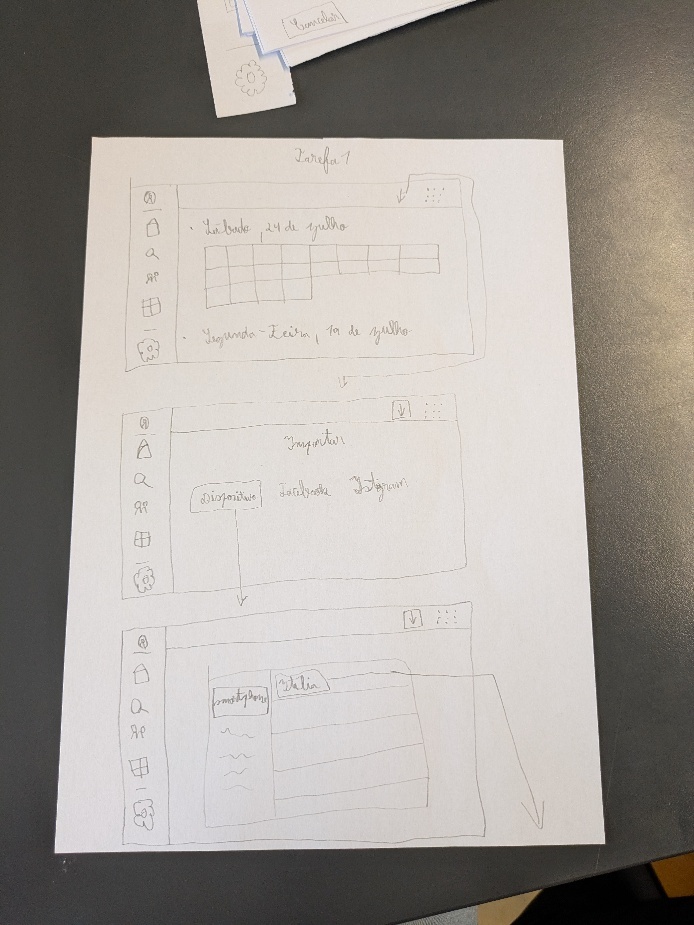 Cancelar
Tarefa 1
· Sábado, 24 de julho
· Segunda-Feira, 19 de julho
Importar
Dispositivo Facebook Istigram
smartphone Italia